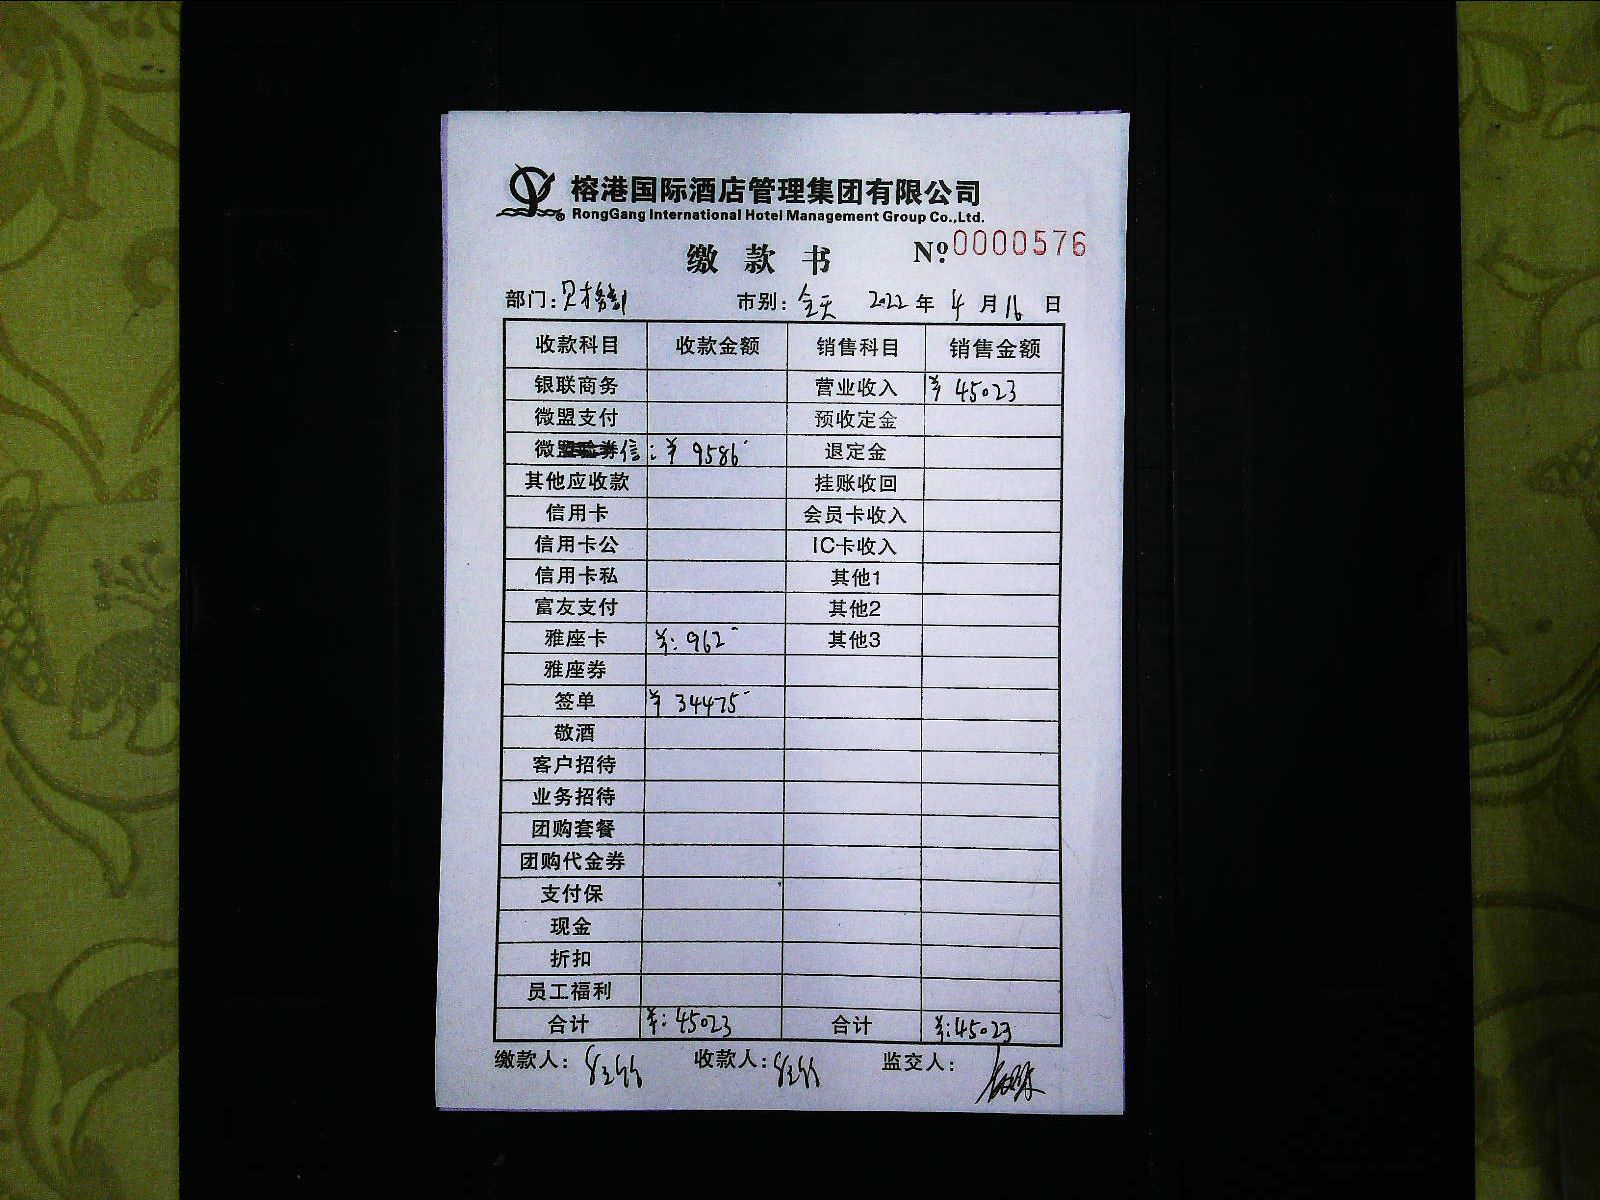 榕港国际酒店管理集团有限公司
RongGang International Hotel Management Group Co.,Ltd.
缴款书 №0000576
部门: 市别:全天 2022年4月16日
收款科目 收款金额 销售科目 销售金额
银联商务 营业收入 ¥45023
微盟支付 预收定金
微信:¥9586 退定金
其他应收款 挂账收回
信用卡 会员卡收入
信用卡公 IC卡收入
信用卡私 其他1
富友支付 其他2
雅座卡 ¥:962 其他3
雅座券
签单 ¥34475
敬酒
客户招待
业务招待
团购套餐
团购代金券
支付保
现金
折扣
员工福利
合计 ¥:45023 合计 ¥:45023
缴款人: 收款人: 监交人: